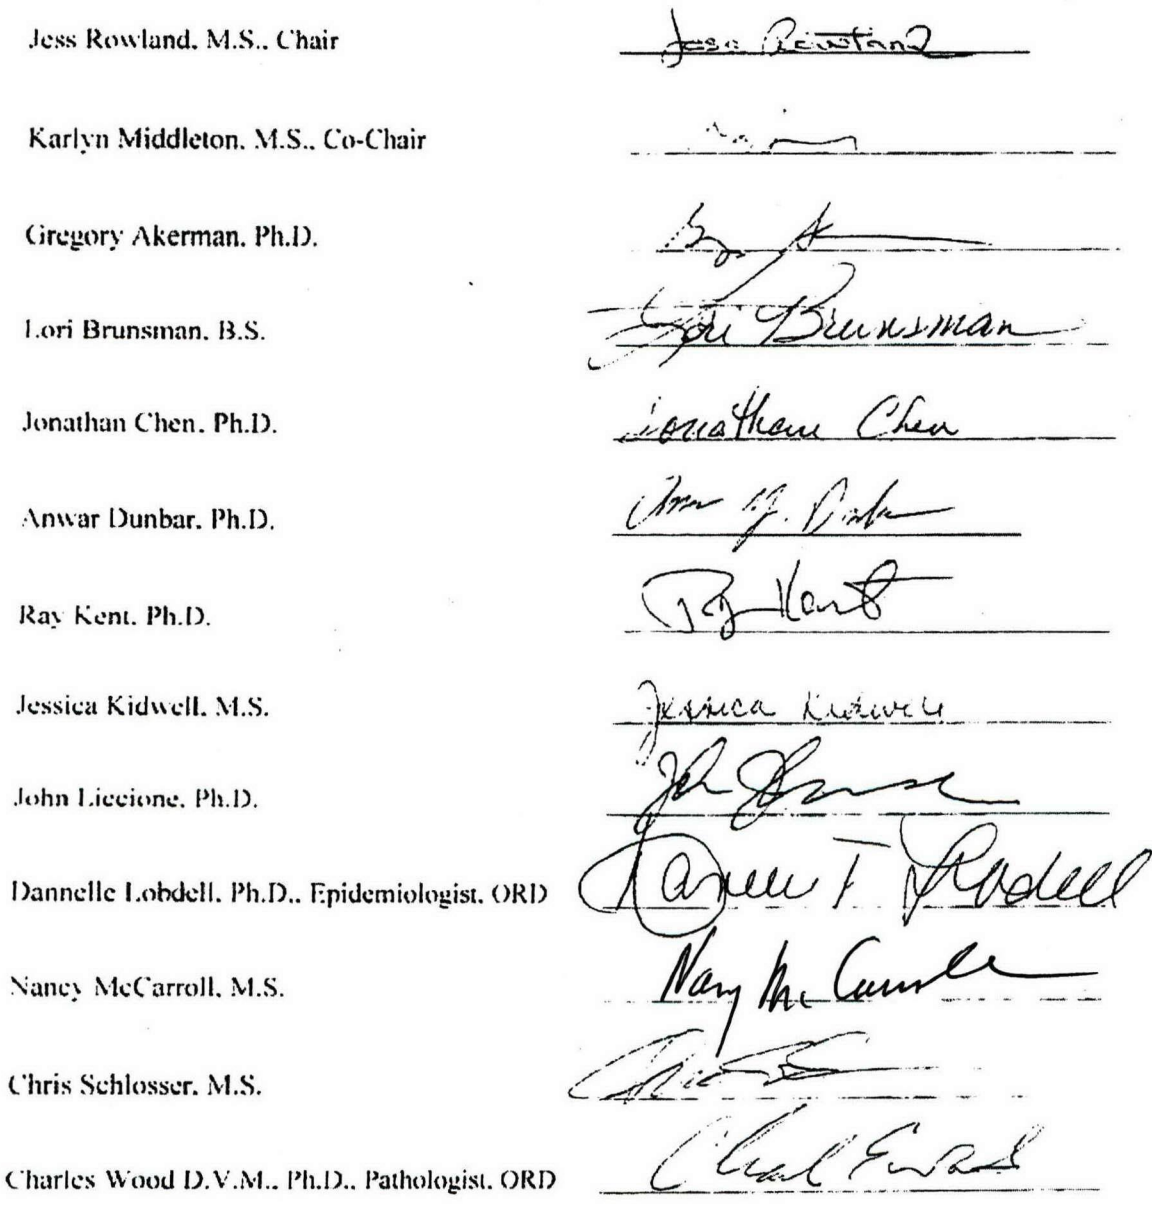 Jess Rowland, M.S., Chair Jess Rowland
Karlyn Middleton, M.S., Co-Chair
Gregory Akerman, Ph.D.
Lori Brunsman, B.S. Lori Brunsman
Jonathan Chen, Ph.D. Jonathan Chen
Anwar Dunbar, Ph.D.
Ray Kent, Ph.D. Ray Kent
Jessica Kidwell, M.S. Jessica Kidwell
John Liccione, Ph.D. John
Dannelle Lobdell, Ph.D., Epidemiologist, ORD
Nancy McCarroll, M.S. Nancy McCarroll
Chris Schlosser, M.S.
Charles Wood D.V.M., Ph.D., Pathologist, ORD